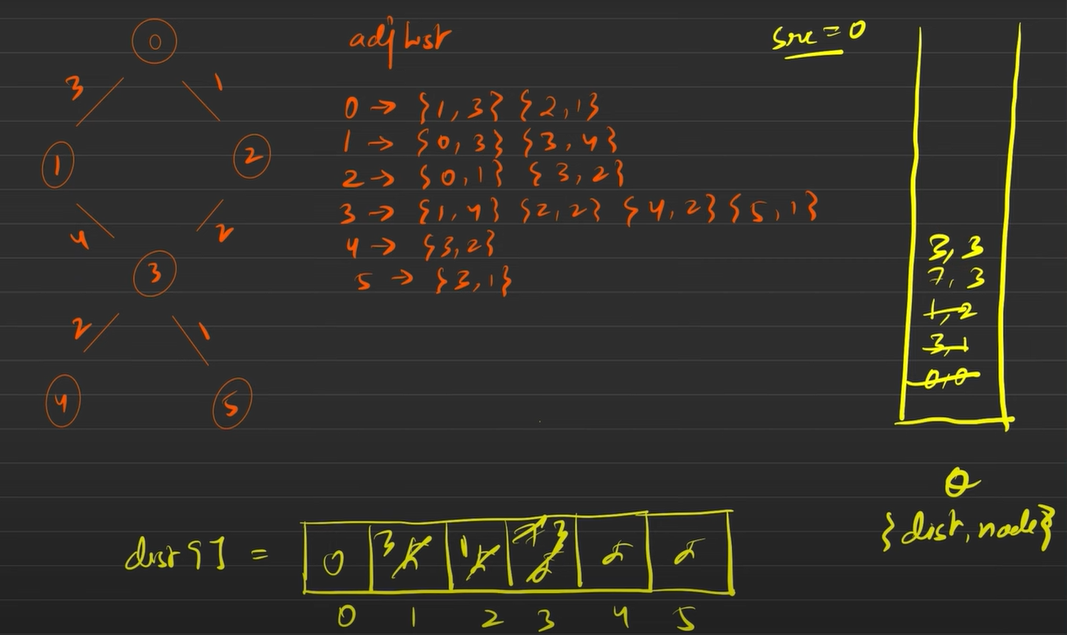 0
3 1
1 2
4 2
3
2 1
4 5
adj list
0 → {1, 3} {2, 1}
1 → {0, 3} {3, 4}
2 → {0, 1} {3, 2}
3 → {1, 4} {2, 2} {4, 2} {5, 1}
4 → {3, 2}
5 → {3, 1}
src = 0
3, 3
7, 3
1, 2
3, 1
0, 0
Q
{dist, node}
dist[] =
0 3 1 7 3
0 1 2 3 4 5